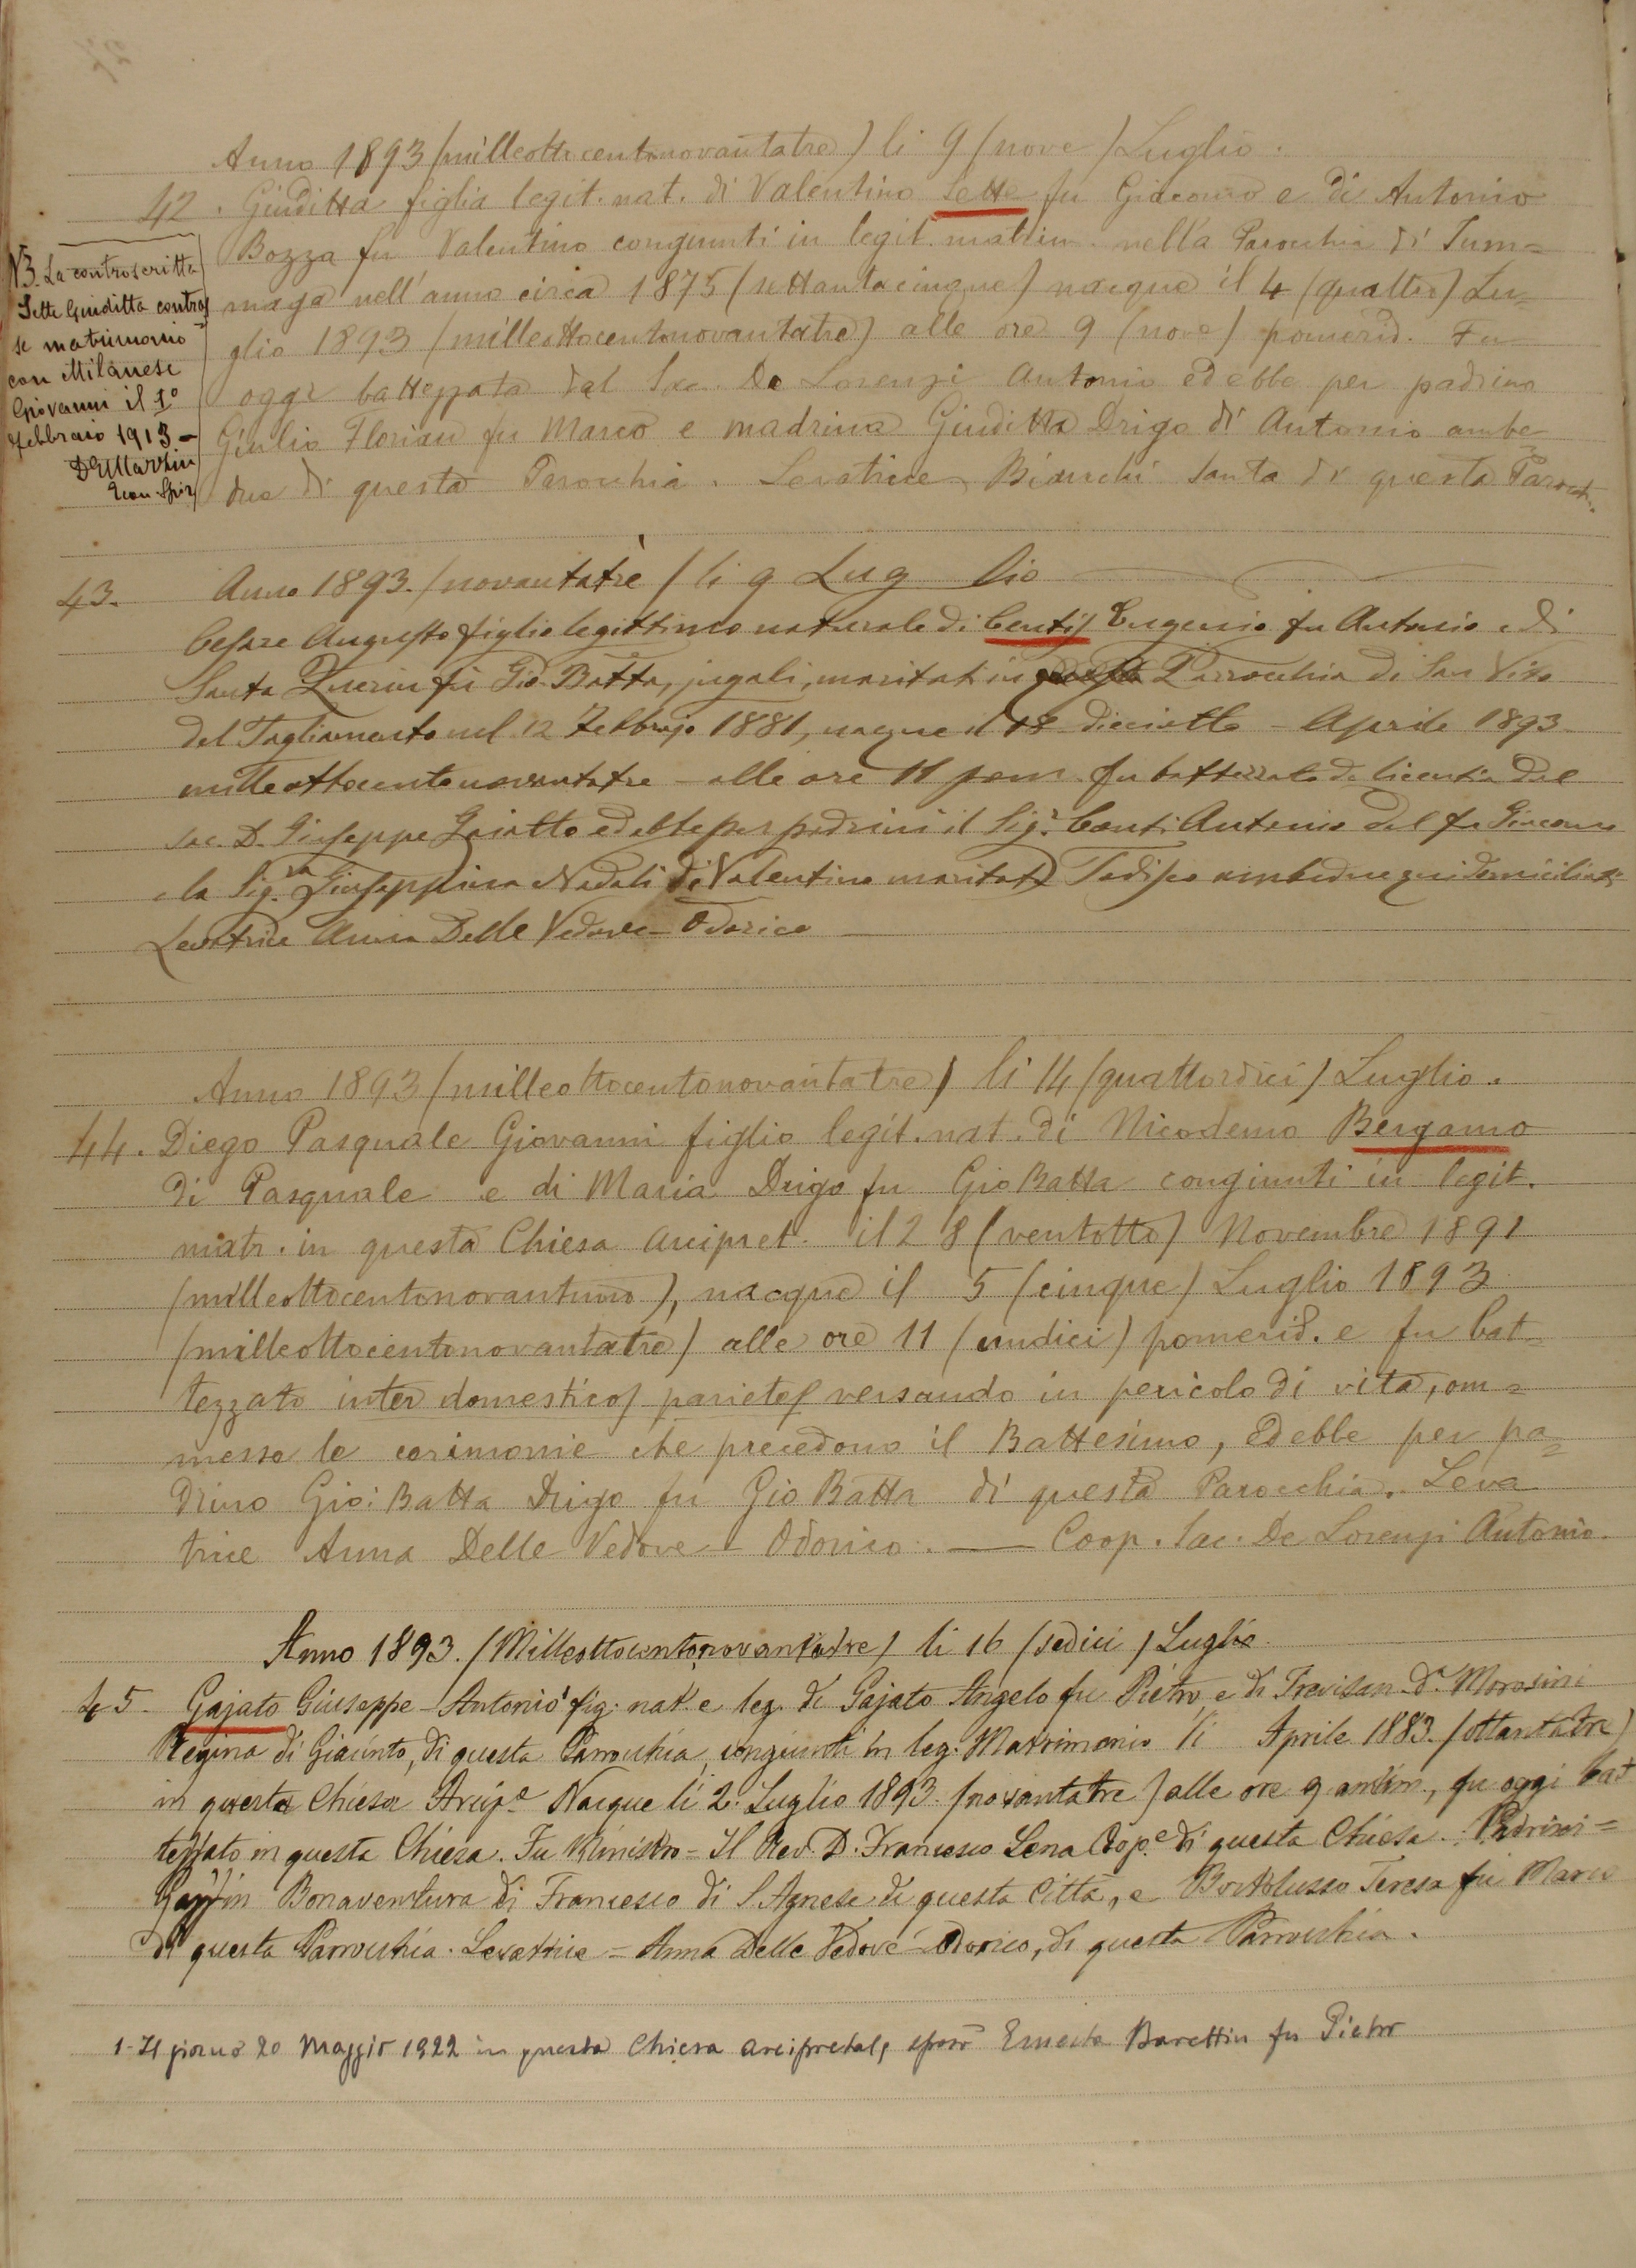 Anno 1893 (milleottocentonovantatre) li 9 (nove) Luglio.
42. Giuditta figlia legit. nat. di Valentino Sette fu Giacomo e di Antonio
Bozza fu Valentino congiunti in legit. matrim. nella Parocchia di Sum=
maga nell'anno circa 1875 (settantacinque) nacque il 4 (quattro) Lu=
glio 1893 (milleottocentonovantatre) alle ore 9 (nove) pomerid. Fu
oggi battezzata dal Sac. De Lorenzi Antonio ed ebbe per padrino
Giulio Florian fu Marco e madrina Giuditta Drigo di Antonio ambe
due di questa Parocchia. Levatrice Bianchi Santa di questa Paroch.
NB. La controscritta
Sette Giuditta contras
se matrimonio
con Milanese
Giovanni il 1º
Febbraio 1913 -
43. Anno 1893. (novantatrè) li 9 Luglio
Cesare Augusto figlio legittimo naturale di Centis Eugenio fu Antonio e di
Santa Querin fu Gio Batta, jugali, maritati in Parrocchia di San Vito
del Tagliamento nel 12 Febbrajo 1881, nacque il 18 dieciotto - Aprile 1893
milleottocentonovantatre - alle ore 11 pom. fu battezzato de licentia dal
sac. D. Giuseppe ed ebbe per padrini il Sig.r Conti Antonio del fu Giacomo
e la Sig.ra Giuseppina Nadali di Valentino maritata ambedue qui domiciliati
Levatrice Anna Delle Vedove - Odorico
Anno 1893 (milleottocentonovantatre) li 14 (quattordici) Luglio.
44. Diego Pasquale Giovanni figlio legit. nat. di Nicodemo Bergamo
di Pasquale e di Maria Drigo fu Gio Batta congiunti in legit.
matr. in questa Chiesa Arcipret. il 28 (ventotto) Novembre 1891
(milleottocentonovantuno), nacque il 5 (cinque) Luglio 1893
(milleottocentonovantatre) alle ore 11 (undici) pomerid. e fu bat=
tezzato inter domesticos parietes versando in pericolo di vita, om=
messo le cerimonie che precedono il Battesimo, ed ebbe per pa=
drino Gio: Batta Drigo fu Gio Batta di questa Parocchia. Leva
trice Anna Delle Vedove - Odorico. — Coop. Sac. De Lorenzi Antonio.
Anno 1893. (Milleottocentonovantatre) li 16 (sedici) Luglio.
45. Gajato Giuseppe - Antonio fig. nat. e leg. di Gajato Angelo fu Pietro e di Trevisan d.a Morosini
Regina di Giacinto, di questa Parrocchia, congiunti in leg. Matrimonio li Aprile 1883. (ottantatre)
in questa Chiesa Arcip.e Nacque li 2. Luglio 1893. (novantatre) alle ore 9 antim., fu oggi bat
tezzato in questa Chiesa. Fu Ministro - Il Rev. D. Francesco Lena Coop.e di questa Chiesa. Padrini =
Bonaventura di Francesco di S. Agnese di questa Città, e Bortolusso Teresa fu Marco
di questa Parrocchia. Levatrice = Anna Delle Vedove - Odorico, di questa Parrocchia.
1 - Il giorno 20 Maggio 1922 in questa Chiesa arcipretale sposò Ernesta Barettin fu Pietro